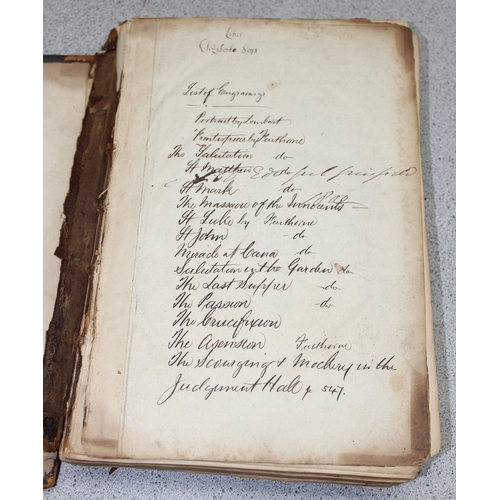 List of Engravings
Portrait by Lombart
Frontispiece by Faithorne
The Salutation do
St Matthew
St Mark do
The Massacre of the Innocents
St Luke by Faithorne
St John - do
Miracle at Cana do
Salutation in the Garden do
The Last Supper do
The Passion do
The Crucifixion
The Asension Faithorne
The Scourging & Mockery in the
Judgment Hall p 547.